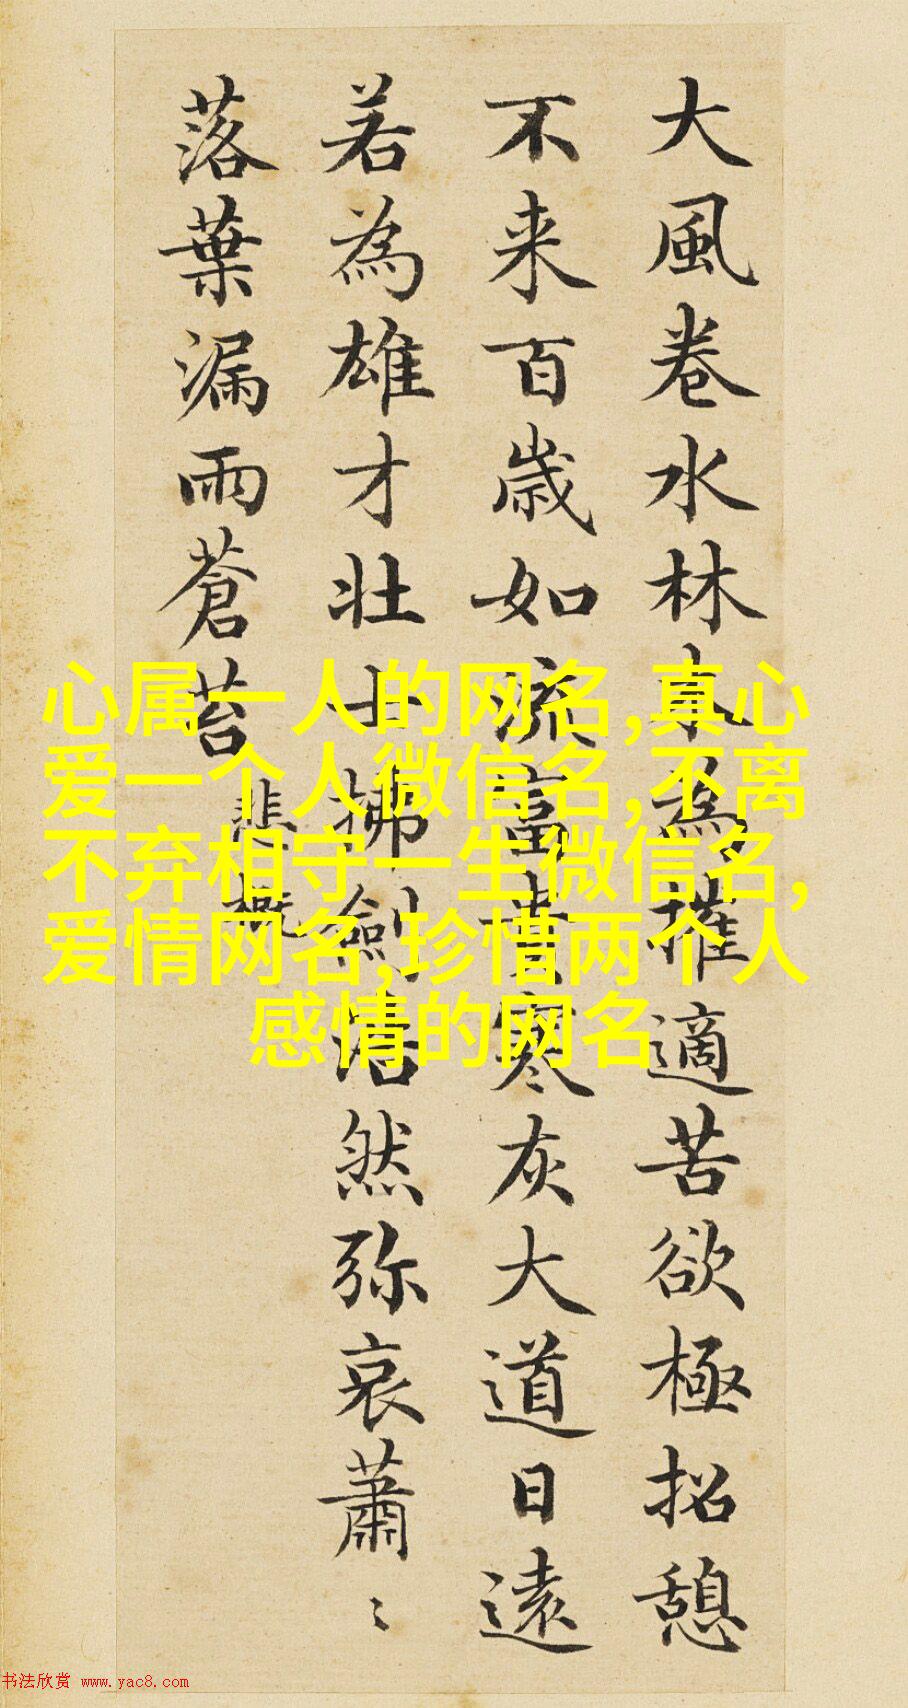 大風卷水林木為摧適苦欲極招憩
不来百歳如流富貴寒灰大道日遠
若為雄才壮士拂劍浩然弥哀蕭〻
落葉漏雨蒼苔
悲慨
心属一人的网名,真心
爱一个人微信名,不离
不弃相守一生微信名,
爱情网名,珍惜两个人
感情的网名
书法欣赏 www.yac8.com